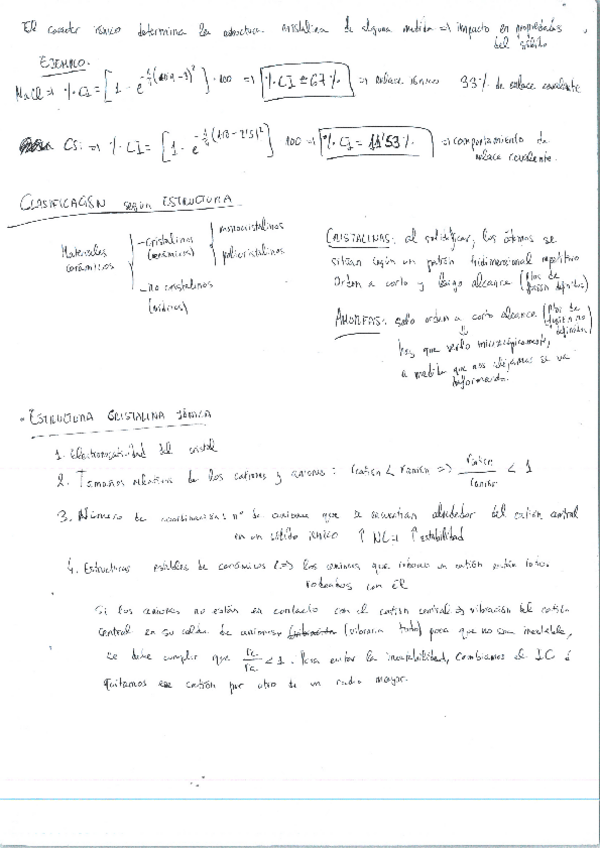 El caracter iónico determina la estructura cristalina de alguna medida => impacto en propiedades
del sólido
EJEMPLO.
NaCl => % CI = [1 - e^(-1/4 (0'9 - 3)²)] · 100 => % CI = 67 % => enlace iónico 33% de enlace covalente
CSi => % CI = [1 - e^(-1/4 (1'8 - 2'5)²)] 100 => % CI = 11'53 % => comportamiento de
enlace covalente.
CLASIFICACIÓN según ESTRUCTURA
Materiales cerámicos
- cristalinos (cerámicos)
monocristalinos
policristalinos
- no cristalinos (vidrios)
CRISTALINAS: al solidificar, los átomos se
sitúan según un patrón tridimensional repetitivo
Orden a corto y largo alcance (Ptos de fusión definidos)
AMORFAS: solo orden a corto alcance (Ptos de fusión no definidos)
hay que verlo microscópicamente,
a medida que nos alejamos se va
deformando.
- ESTRUCTURA CRISTALINA IÓNICA
1. Electronegatividad del cristal
2. Tamaños relativos de los cationes y aniones: rcatión < ranión => rcatión / ranión < 1
3. Número de coordinación: nº de aniones que se encuentran alrededor del catión central
en un sólido iónico ↑ NC => ↑ estabilidad
4. Estructuras estables de cerámicos (=> los aniones que rodean un catión están todos
rodeados con él
Si los aniones no están en contacto con el catión central => vibración del catión
central en su celda de aniones (vibraría todo) para que no sea inestable,
se debe cumplir que rc/ra < 1. Para evitar la inestabilidad, cambiamos el IC ó
quitamos ese catión por otro de un radio mayor.